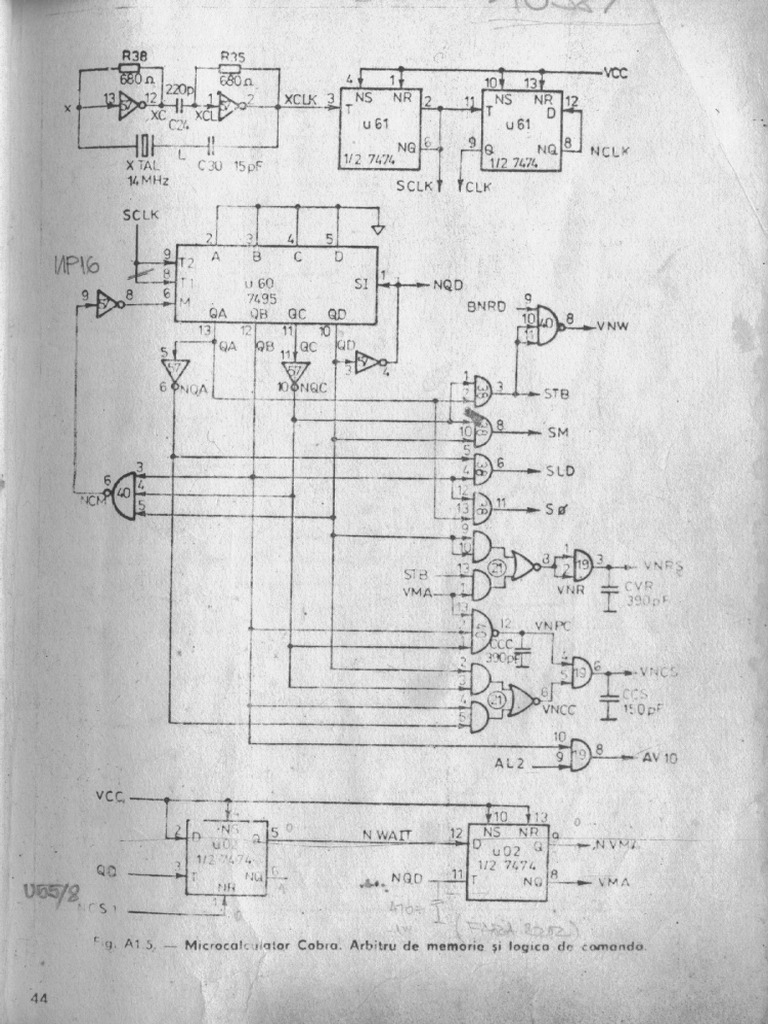 R38
R35
680Ω
680Ω
220p
X
13
57
12
XC
C24
XCL
1
57
2
XCLK
3
XTAL
14MHz
L
C30
15pF
4
1
VCC
NS
NR
T
u61
2
NQ
6
1/2 7474
SCLK
11
10
13
NS
NR
D
12
T
u61
9
Q
NQ
8
1/2 7474
CLK
NCLK
SCLK
UP16
2
3
4
5
A
B
C
D
9
T2
8
T1
6
M
u60
7495
SI
1
NQD
QA
QB
QC
QD
13
12
11
10
9
57
8
QA
QB
QC
QD
5
57
6
NQA
11
57
10
NQC
3
4
BNRD
9
10
11
40
8
VNW
1
38
3
STB
10
38
8
SM
5
4
38
6
SLD
12
13
38
11
SØ
6
NCM
40
3
4
5
9
10
STB
13
VMA
1
21
8
1
2
19
3
VNRS
VNR
CVR
390pF
13
40
12
VNPC
CCC
390pF
2
3
4
5
21
6
VNCC
4
5
19
6
VNCS
CCS
150pF
AL2
10
9
19
8
AV10
VCC
2
D
NS
Q
5
NWAIT
u02
1/2 7474
QD
3
T
NQ
6
NR
1
U55/8
12
10
13
NS
NR
D
Q
9
u02
1/2 7474
NQD
11
T
NQ
8
VMA
Fig. A1.5. — Microcalculator Cobra. Arbitru de memorie și logica de comanda.
44